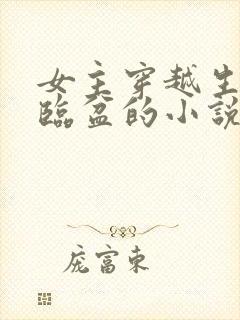 女主穿越生
臨盆的小說
庞富東